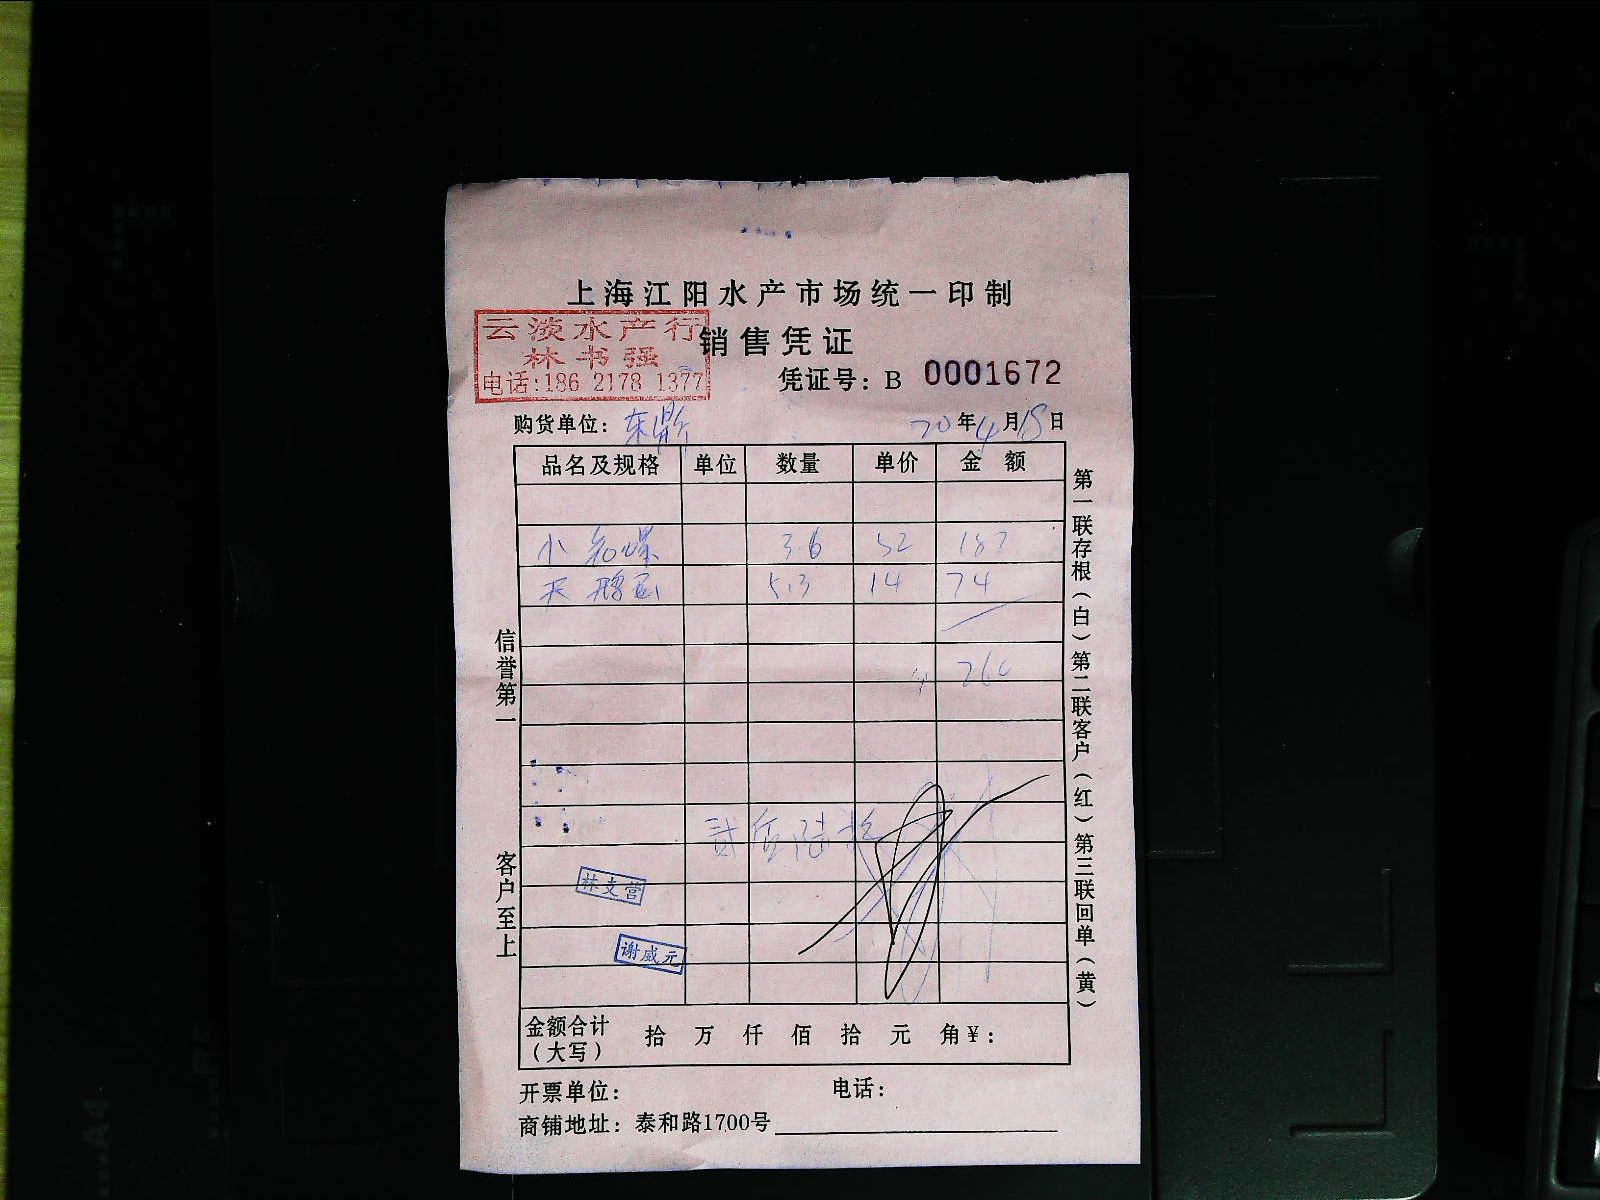 上海江阳水产市场统一印制
云淡水产行
林书强
电话:186 2178 1377
销售凭证
凭证号：B 0001672
购货单位：东鼎 20年4月15日
品名及规格 单位 数量 单价 金额
小 3.6 52 187
5.3 14 74
260
贰佰陆拾
林支营
谢威元
金额合计（大写） 拾 万 仟 佰 拾 元 角￥：
开票单位： 电话：
商铺地址：泰和路1700号
信誉第一 客户至上
第一联存根（白）第二联客户（红）第三联回单（黄）
A4